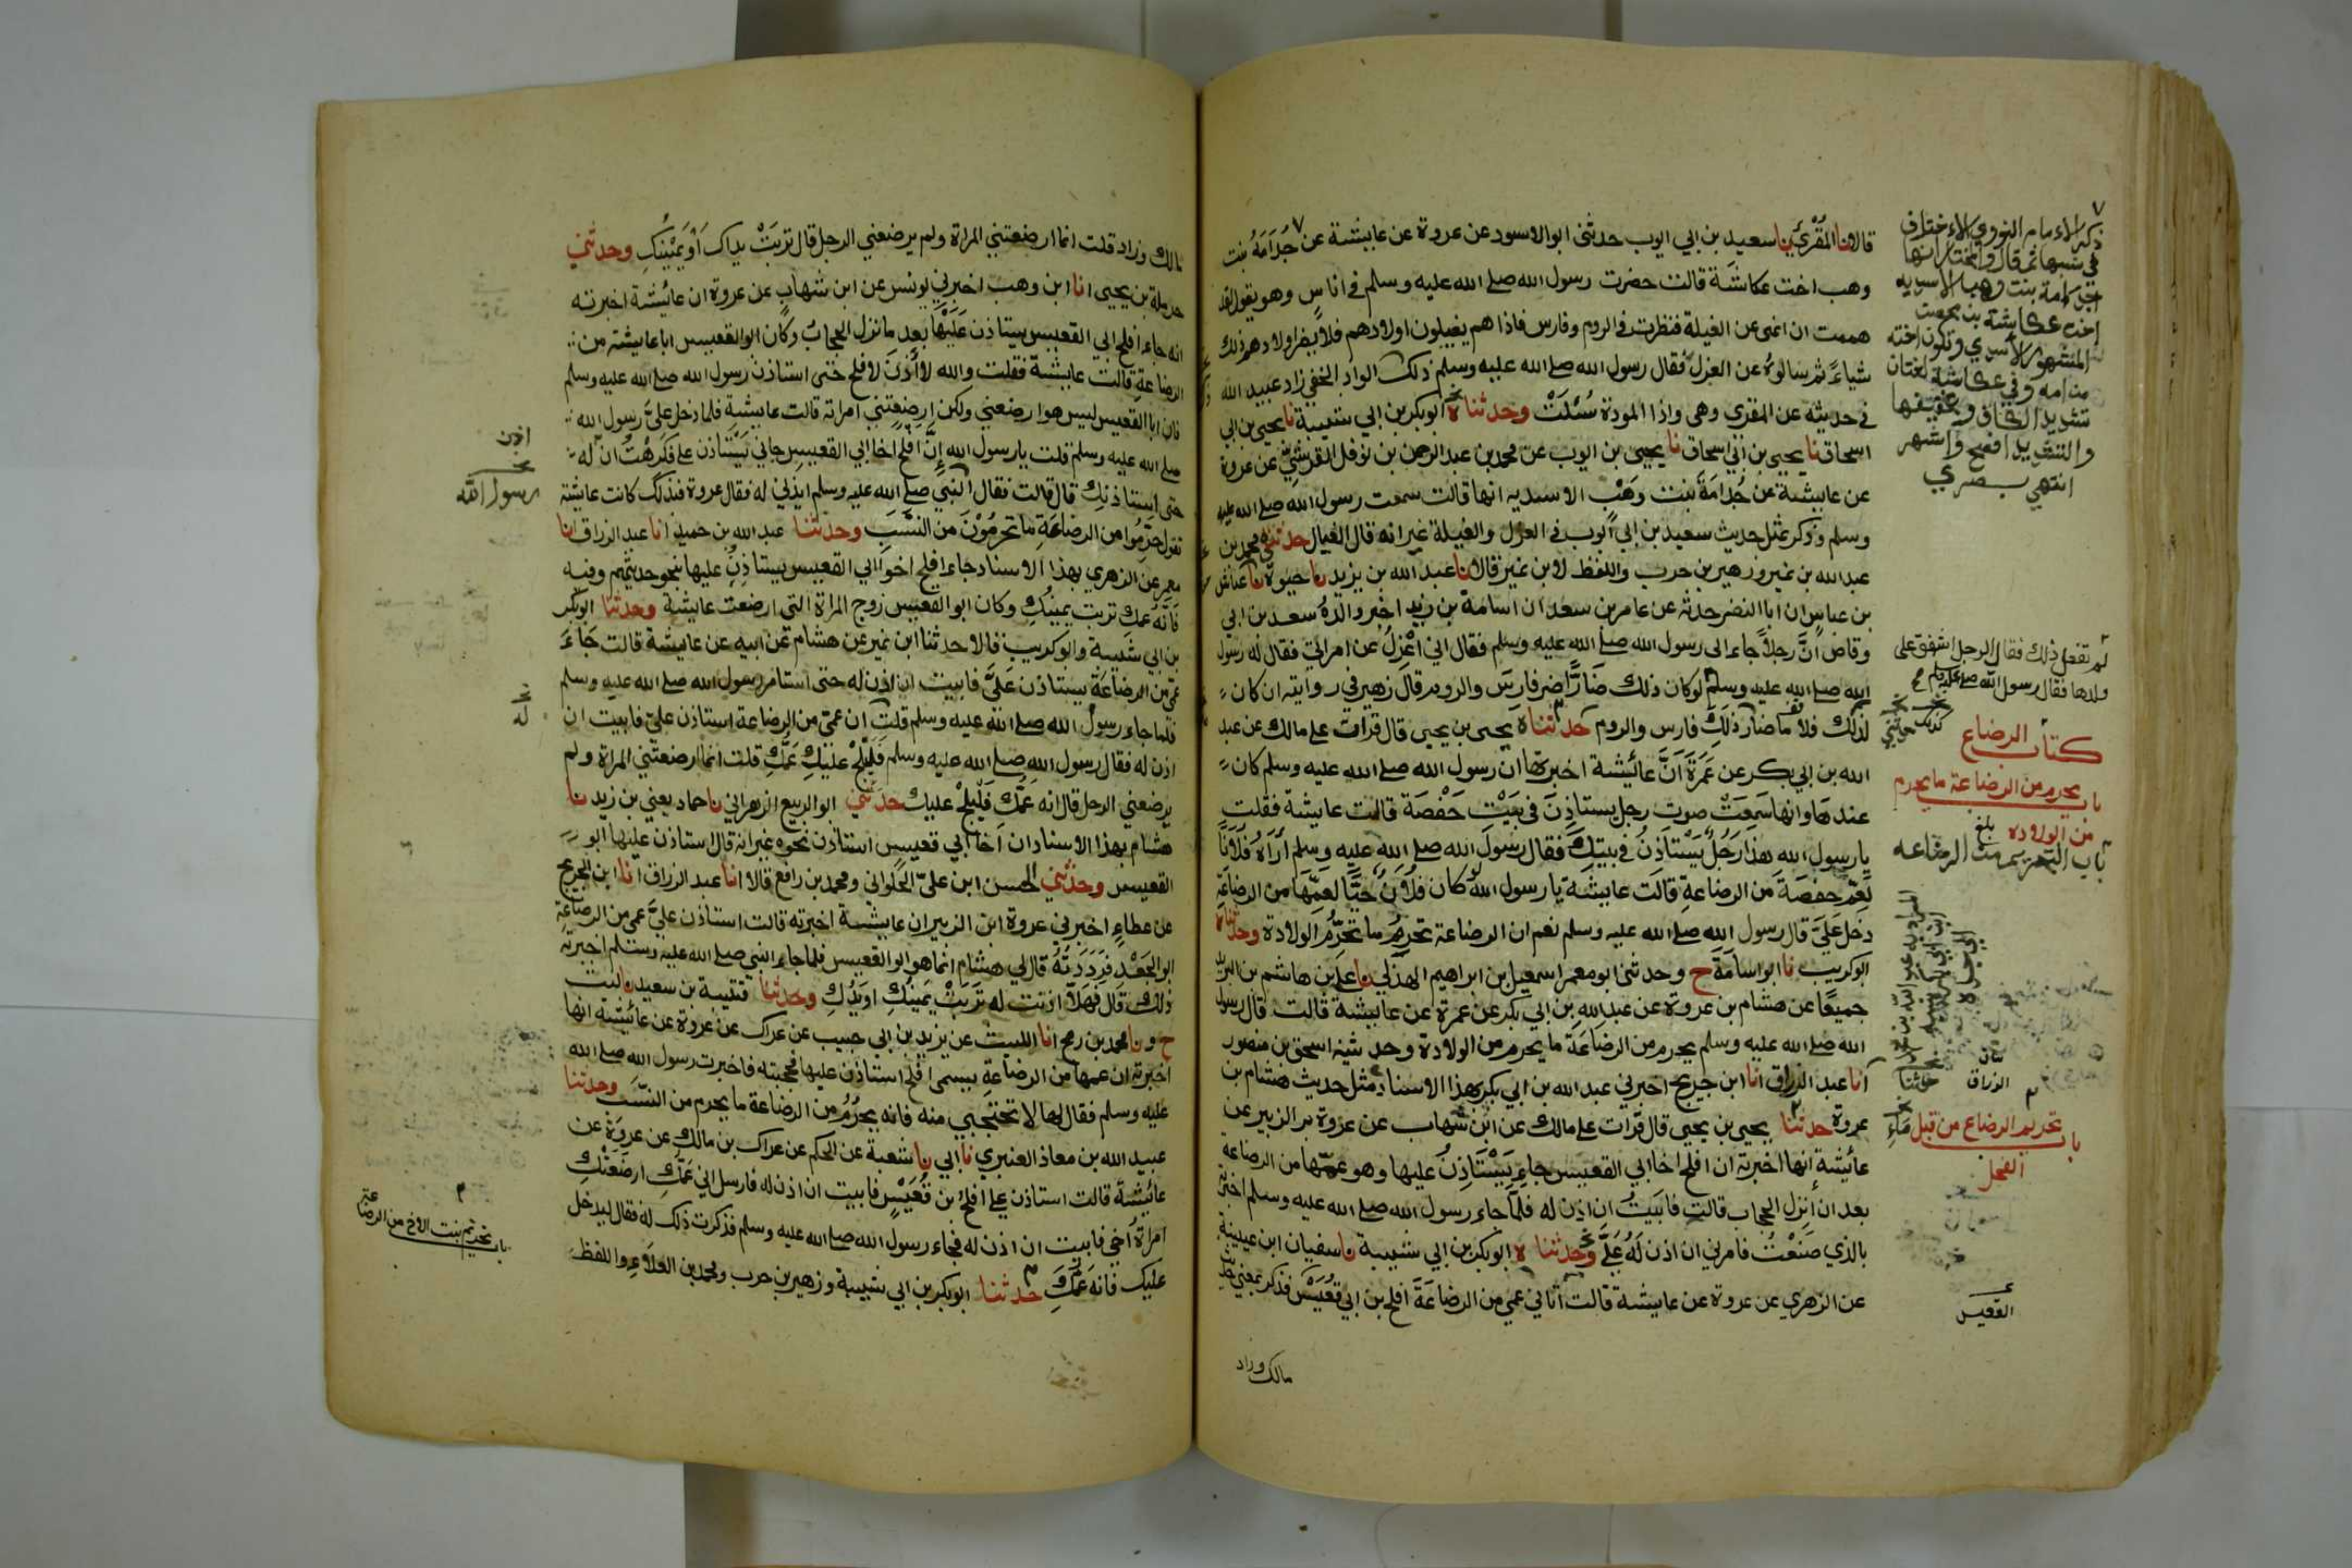 قالا نا المقرئ نا سعيد بن ابي ايوب حدثني ابو الاسود عن عروة عن عايشة عن جدامة بنت
وهب اخت عكاشة قالت حضرت رسول الله صلے الله عليه وسلم في اناس وهو يقول لقد
هممت ان انهى عن الغيلة فنظرت في الروم وفارس فاذا هم يغيلون اولادهم فلا يضر اولادهم ذلك
شياءً ثم سالوهُ عن العزل فقال رسول الله صلے الله عليه وسلم ذلك الواد الخفي زاد عبيد الله
في حديثه عن المقري وهى واذا المودة سُئلَتْ وحدثناه ابو بكر بن ابي شيبة نا يحيى بن
اسحاق نا يحيى بن ايوب عن محمد بن عبد الرحمن بن نوفل القرشيّ عن عروة
عن عايشة عن جُدامَةَ بنت وَهْب الاسديه انها قالت سمعت رسول الله صلے الله عليه
وسلم وذكر بمثل حديث سعيد بن ابي ايوب في العزل والغيلة غير انه قال الغيال حدثني محمد بن
عبد الله بن نمير وزهير بن حرب واللفظ لابن نمير قالا نا عبد الله بن يزيد نا حيوة نا عياش
بن عباس ان ابا النضر حدثه عن عامر بن سعد ان اسامة بن زيد اخبر والدهُ سعد بن ابي
وقاص انَّ رجلاً جاء الى رسول الله صلے الله عليه وسلم فقال اني اعْزِلُ عن امراتي فقال له رسول
الله صلے الله عليه وسلم لو كان ذلك ضَارًّا ضر فارسَ والروم قال زهير في روايته ان كان
لذلك فلا ما ضارَ ذلكَ فارس والروم حدثناه يحيى بن يحيى قال قرات على مالك عن عبد
الله بن ابي بكر عن عَمرَةَ انَّ عائيشة اخبرتها ان رسول الله صلے الله عليه وسلم كان
عندها وانها سَمِعَتْ صوت رجل يستاذِنَ في بَيْت حَفْصَة قالت عايشة فقلت
يا رسول الله هذا رَجُلٌ يَسْتاذنُ في بيتِكَ فقال رسول الله صلے الله عليه وسلم اُرَاهُ فُلانًا
لِعَمّ حفصَةَ من الرضاعةِ قالت عايشَة يا رسول الله لو كان فلانٌ حَيًّا لعمّها من الرضاعَة
دخل عَلَيَّ قال رسول الله صلے الله عليه وسلم نعم ان الرضاعة تحرِّمُ ما تحَرِّمُ الولادة وحدثناه
ابو كريب نا ابو اسامة ح وحدثنى ابو معمر اسمعيل بن ابراهيم الهذلي نا علي بن هاشم بن البريد
جميعًا عن هشام بن عروة عن عبد الله بن ابي بكر عن عمرة عن عايشة قالت قال رسول
الله صلے الله عليه وسلم يحرم من الرضاعَة ما يحرم من الولادة وحدثنيه اسحق بن منصور
انا عبد الرزاق انا ابن جريج اخبرني عبد الله بن ابي بكر بهذا الاسناد مثل حديث هشام بن
عروة حدثنا يحيى بن يحيى قال قرات على مالك عن ابن شهاب عن عروة بن الزبير عن
عائيشة انها اخبرته ان افلح اخا ابي القعيس جاء يَسْتاذِنُ عليها وهو عمّها من الرضاعة
بعد ان انزِل الحجاب قالت فابَيتُ ان اذن له فلمّا جاء رسول الله صلے الله عليه وسلم اخبرته
بالذي صَنَعْتُ فامرني ان اذن لَهُ عَلَيَّ وحدثناه ابو بكر بن ابي شيبة نا سفيان ابن عيينة
عن الزهري عن عروة عن عايشة قالت اتاني عمي من الرضاعَة افلح بن ابي قعَيْس فذكر بمعني حديث
مالك وزاد
ذكر الامام النووي الاختلاف
في نسبها ثم قال والمختار انها
جدامة بنت وهب الاسديه
اخت عكاشة بن محصن
المشهور الاسدي وتكون اخته
من امه وفي عكاشة لغتان
تشديد الكاف وتخفيفها
والتشديد افصح واشهر
انتهى
لم تفعل ذلك فقال الرجل اشفق على
ولدها فقال رسول الله صلے الله عليه وسلم
كتاب الرضاع
باب يحرم من الرضاعة ما يحرم
من الولاده
بلغ
باب التحريم من الرضاعه
الرزاق
حدثنا
باب تحريم الرضاع من قبل مَاءِ
الفحل
القعيس
مالك وزاد قلت انما ارضعتني المراة ولم يرضعني الرجل قال تربَتْ يداك اَوْ يَمِيْنُكِ وحدثني
حرملة بن يحيى انا ابن وهب اخبرني يونس عن ابن شهاب عن عروة ان عائيشة اخبرته
انه جاء افلح اخو ابي القعيس يستاذن عَلَيْها بعد ما نزل الحجابُ وكان ابو القعيس ابا عايشة من
الرضاعةِ قالت عايشة فقلت والله لا أذَنَ لافلح حتى استاذن رسول الله صلے الله عليه وسلم
فان ابا القعيس ليس هو ارضعني ولكن ارضعتني امراته قالت عايشة فلما دخل عليَّ رسول الله
صلے الله عليه وسلم قلت يا رسول الله اِنَّ افلح اخا ابي القعيس جاني يَسْتاذن على فكَرِهْتُ ان له
حتى استاذنك قال قالت فقال النبي صلے الله عليه وسلم ايذني له فقال عروة فبذلك كانت عايشة
تقول حَرّموا من الرضاعَةِ ما تحرمُوْنَ من النسَبِ وحدثنا عبد الله بن حميد انا عبد الرزاق انا
معمر عن الزهري بهذا الاسناد جاء افلح اخو ابي القعيس يستاذِنُ عليها بنحو حديثهم وفيه
فَانَّهُ عمك تربت يمينُكِ وكان ابو القعيس زوج المراة التي ارضعت عايشة وحدثنا ابو بكر
بن ابي شيبة وابو كريب قالا حدثنا ابن نمير عن هشام عن ابيه عن عايشة قالت جَاءَ
عمّي من الرضاعَة يستاذن عَليَّ فابيت ان اذن له حتى استامر رسول الله صلے الله عليه وسلم
فلما جاء رسول الله صلے الله عليه وسلم قلت ان عمّي من الرضاعة استاذن عليّ فابيت ان
اذن له فقال رسول الله صلے الله عليه وسلم فَليَلِجْ عليكِ عَمُّكِ قلت انما ارضعتني المراة ولم
يرضعني الرجل قال انه عَمُّك فَليَلِجْ عليك حدثني ابو الربيع الزهراني نا حماد يعني بن زيد نا
هشام بهذا الاسناد ان اَخَا ابي قعيس استاذن نحوه غير انه قال استاذن عليها ابو
القعيس وحدثني الحسن ابن عليّ الحُلواني ومحمد بن رافع قالا انا عبد الرزاق انا ابن جريج
عن عطاءٍ اخبرني عروة ابن الزبير ان عايشة اخبرته قالت استاذن عليَّ عمي من الرضاعَة
ابو الجَعْدِ فَرَدَدْتُهُ قال لي هشام انما هو ابو القعيس فلما جاء النبي صلے الله عليه وسلم اخبرته
ذلك قال فَهَلاّ اذنت له تَرِبَتْ يَمينُكِ او يَدُكِ وحدثنا قتيبة بن سعيد نا ليث
ح ونا محمد بن رمح انا الليث عن يزيد بن ابي حبيب عن عراك عن عروة عن عائيشة انها
اخبرته ان عمها من الرضاعةِ يسمى افلح استاذن عليها فحجبته فاخبرت رسول الله صلے الله
عليه وسلم فقال لها لا تحتجبي منه فانه يحرُمُ من الرضاعة ما يحرم من النسَب وحدثنا
عبيد الله بن معاذ العنبري نا ابي نا شعبة عن الحكم عن عراك بن مالك عن عروة عن
عائيشة قالت استاذن علي افلحُ بن قُعَيْسٍ فابيت ان اذن له فارسل اني عَمُّكِ ارضعَتْكِ
امراةُ اخي فابيت ان اذن له فجاء رسول الله صلے الله عليه وسلم فذكرت ذلك له فقال ليدخل
عليك فانه عَمُّكِ حدثنا ابو بكر بن ابي شيبة وزهير بن حرب ومحمد بن العلاءِ واللفظ
اذن
رسول الله
له
باب تحريم بنت الاخ من الرضاعة